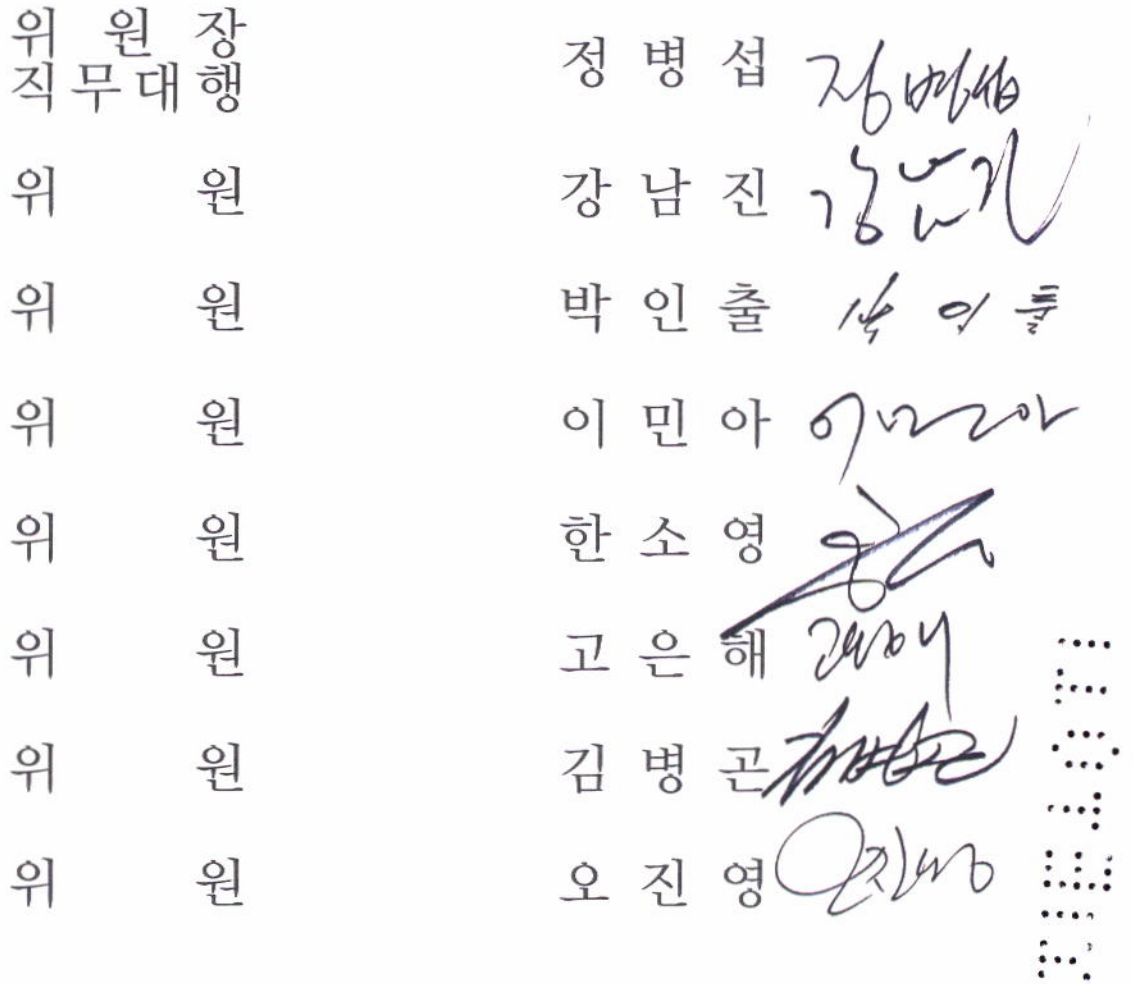 위 원 장
직 무 대 행 정 병 섭 정병섭
위 원 강 남 진 강남진
위 원 박 인 출 박인출
위 원 이 민 아 이민아
위 원 한 소 영
위 원 고 은 해 고은해
위 원 김 병 곤 김병곤
위 원 오 진 영 오진영